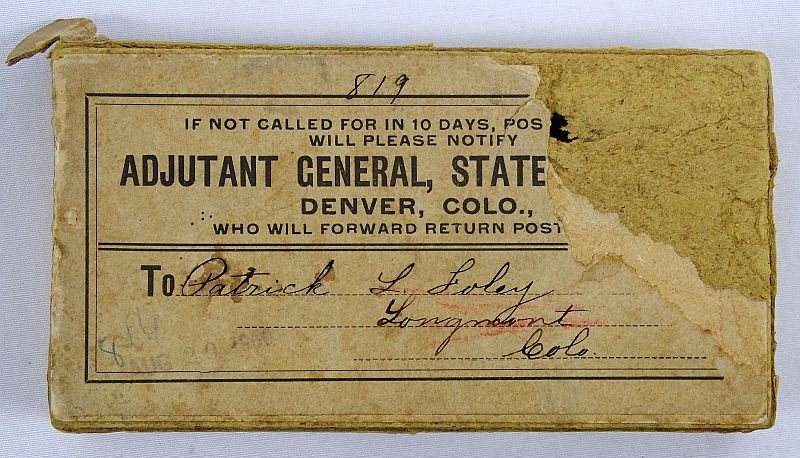 819
IF NOT CALLED FOR IN 10 DAYS, POS
WILL PLEASE NOTIFY
ADJUTANT GENERAL, STATE
DENVER, COLO.,
WHO WILL FORWARD RETURN POST
To Patrick L. Foley
Longmont
Colo.